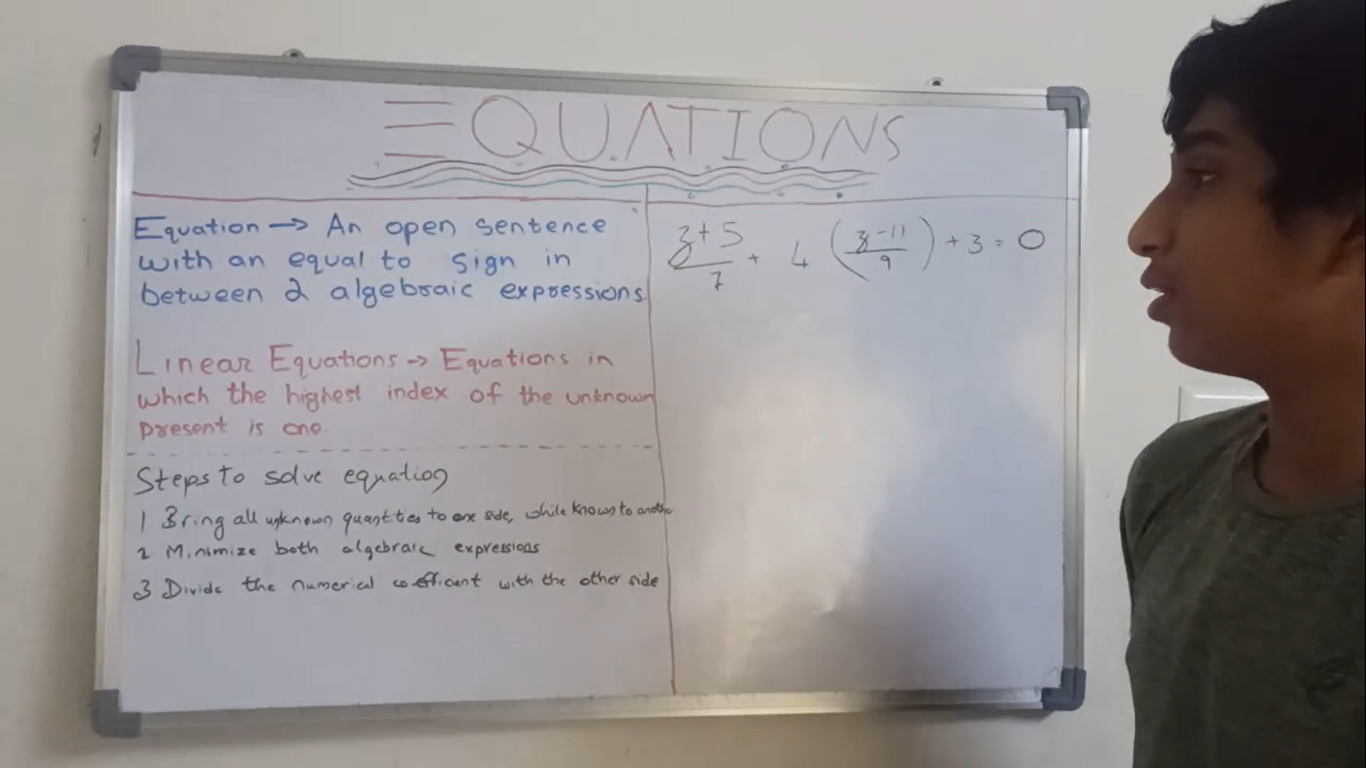 EQUATIONS
Equation → An open sentence
with an equal to sign in
between 2 algebraic expressions.
Linear Equations → Equations in
which the highest index of the unknown
present is one.
Steps to solve equation
1 Bring all unknown quantities to one side, while known to another
2 Minimize both algebraic expressions
3 Divide the numerical coefficent with the other side
(z+5)/7 + 4((z-11)/9) + 3 = 0